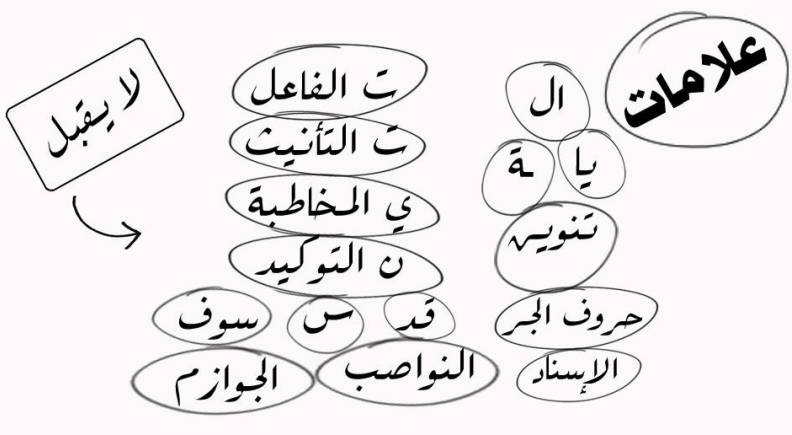 علامات
ال
يا
ـة
تنوين
حروف الجر
الإسناد
ت الفاعل
ت التأنيث
ي المخاطبة
ن التوكيد
قد س سوف
النواصب الجوازم
لا يقبل